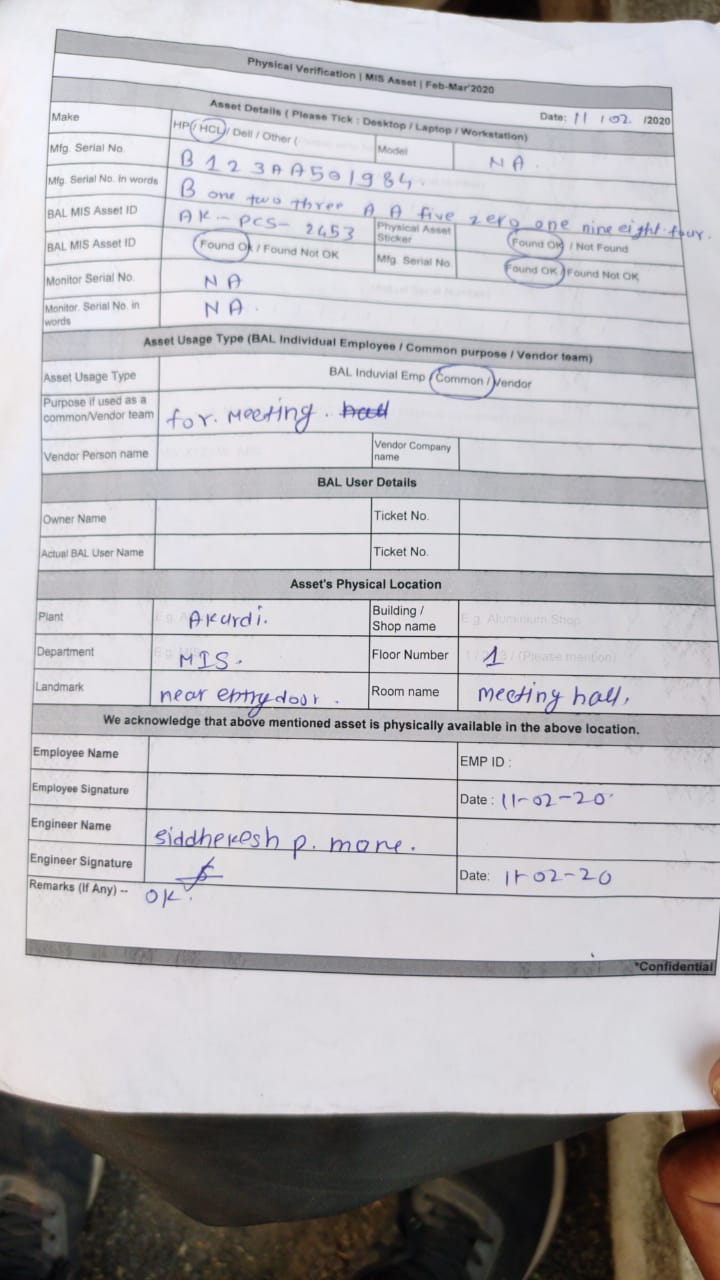 Physical Verification | MIS Asset | Feb-Mar'2020
Asset Details ( Please Tick : Desktop / Laptop / Workstation) Date: 11 / 02 /2020
Make HP / HCL / Dell / Other ( Model NA.
Mfg. Serial No. B123AA501984.
Mfg. Serial No. In words B one two three A A five zero one nine eight four.
BAL MIS Asset ID AK-PCS-2453 Physical Asset Sticker Found OK / Not Found
BAL MIS Asset ID Found Ok / Found Not OK Mfg. Serial No. Found OK / Found Not OK
Monitor Serial No. NA
Monitor. Serial No. in words NA.
Asset Usage Type (BAL Individual Employee / Common purpose / Vendor team)
Asset Usage Type BAL Induvial Emp / Common / Vendor
Purpose if used as a common/Vendor team for. Meeting. hall
Vendor Person name Vendor Company name
BAL User Details
Owner Name Ticket No.
Actual BAL User Name Ticket No.
Asset's Physical Location
Plant Akurdi. Building / Shop name E.g. Aluminium Shop
Department MIS. Floor Number 1 (Please mention)
Landmark near entry door. Room name meeting hall,
We acknowledge that above mentioned asset is physically available in the above location.
Employee Name EMP ID :
Employee Signature Date : 11-02-20
Engineer Name siddhekesh p. more.
Engineer Signature Date: 11-02-20
Remarks (If Any) -- OK.
*Confidential